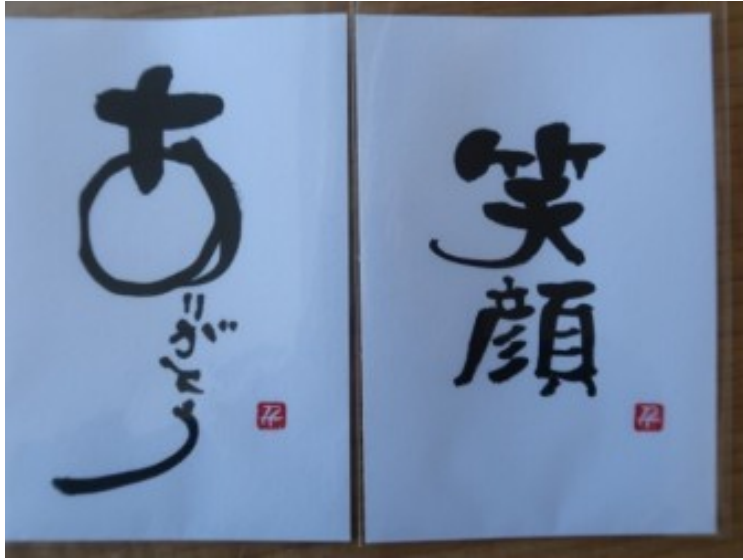 ありがとう
笑顔